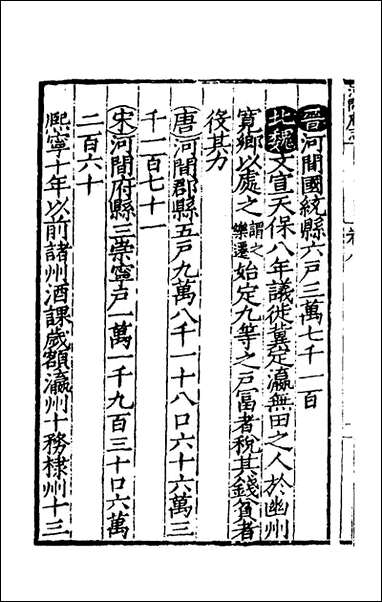 晋河間國統縣六戶三萬七千一百
北魏文宣天保八年議徙冀定瀛無田之人於幽州
寛鄉以處之謂之樂遷始定九等之戶富者稅其錢貧者
役其力
唐河間郡縣五戶九萬八千一十八口六十六萬三
千一百七十一
宋河間府縣三崇寧戶一萬一千九百三十口六萬
二百六十
熙寧十年以前諸州酒課歲額瀛州十務棣州十三